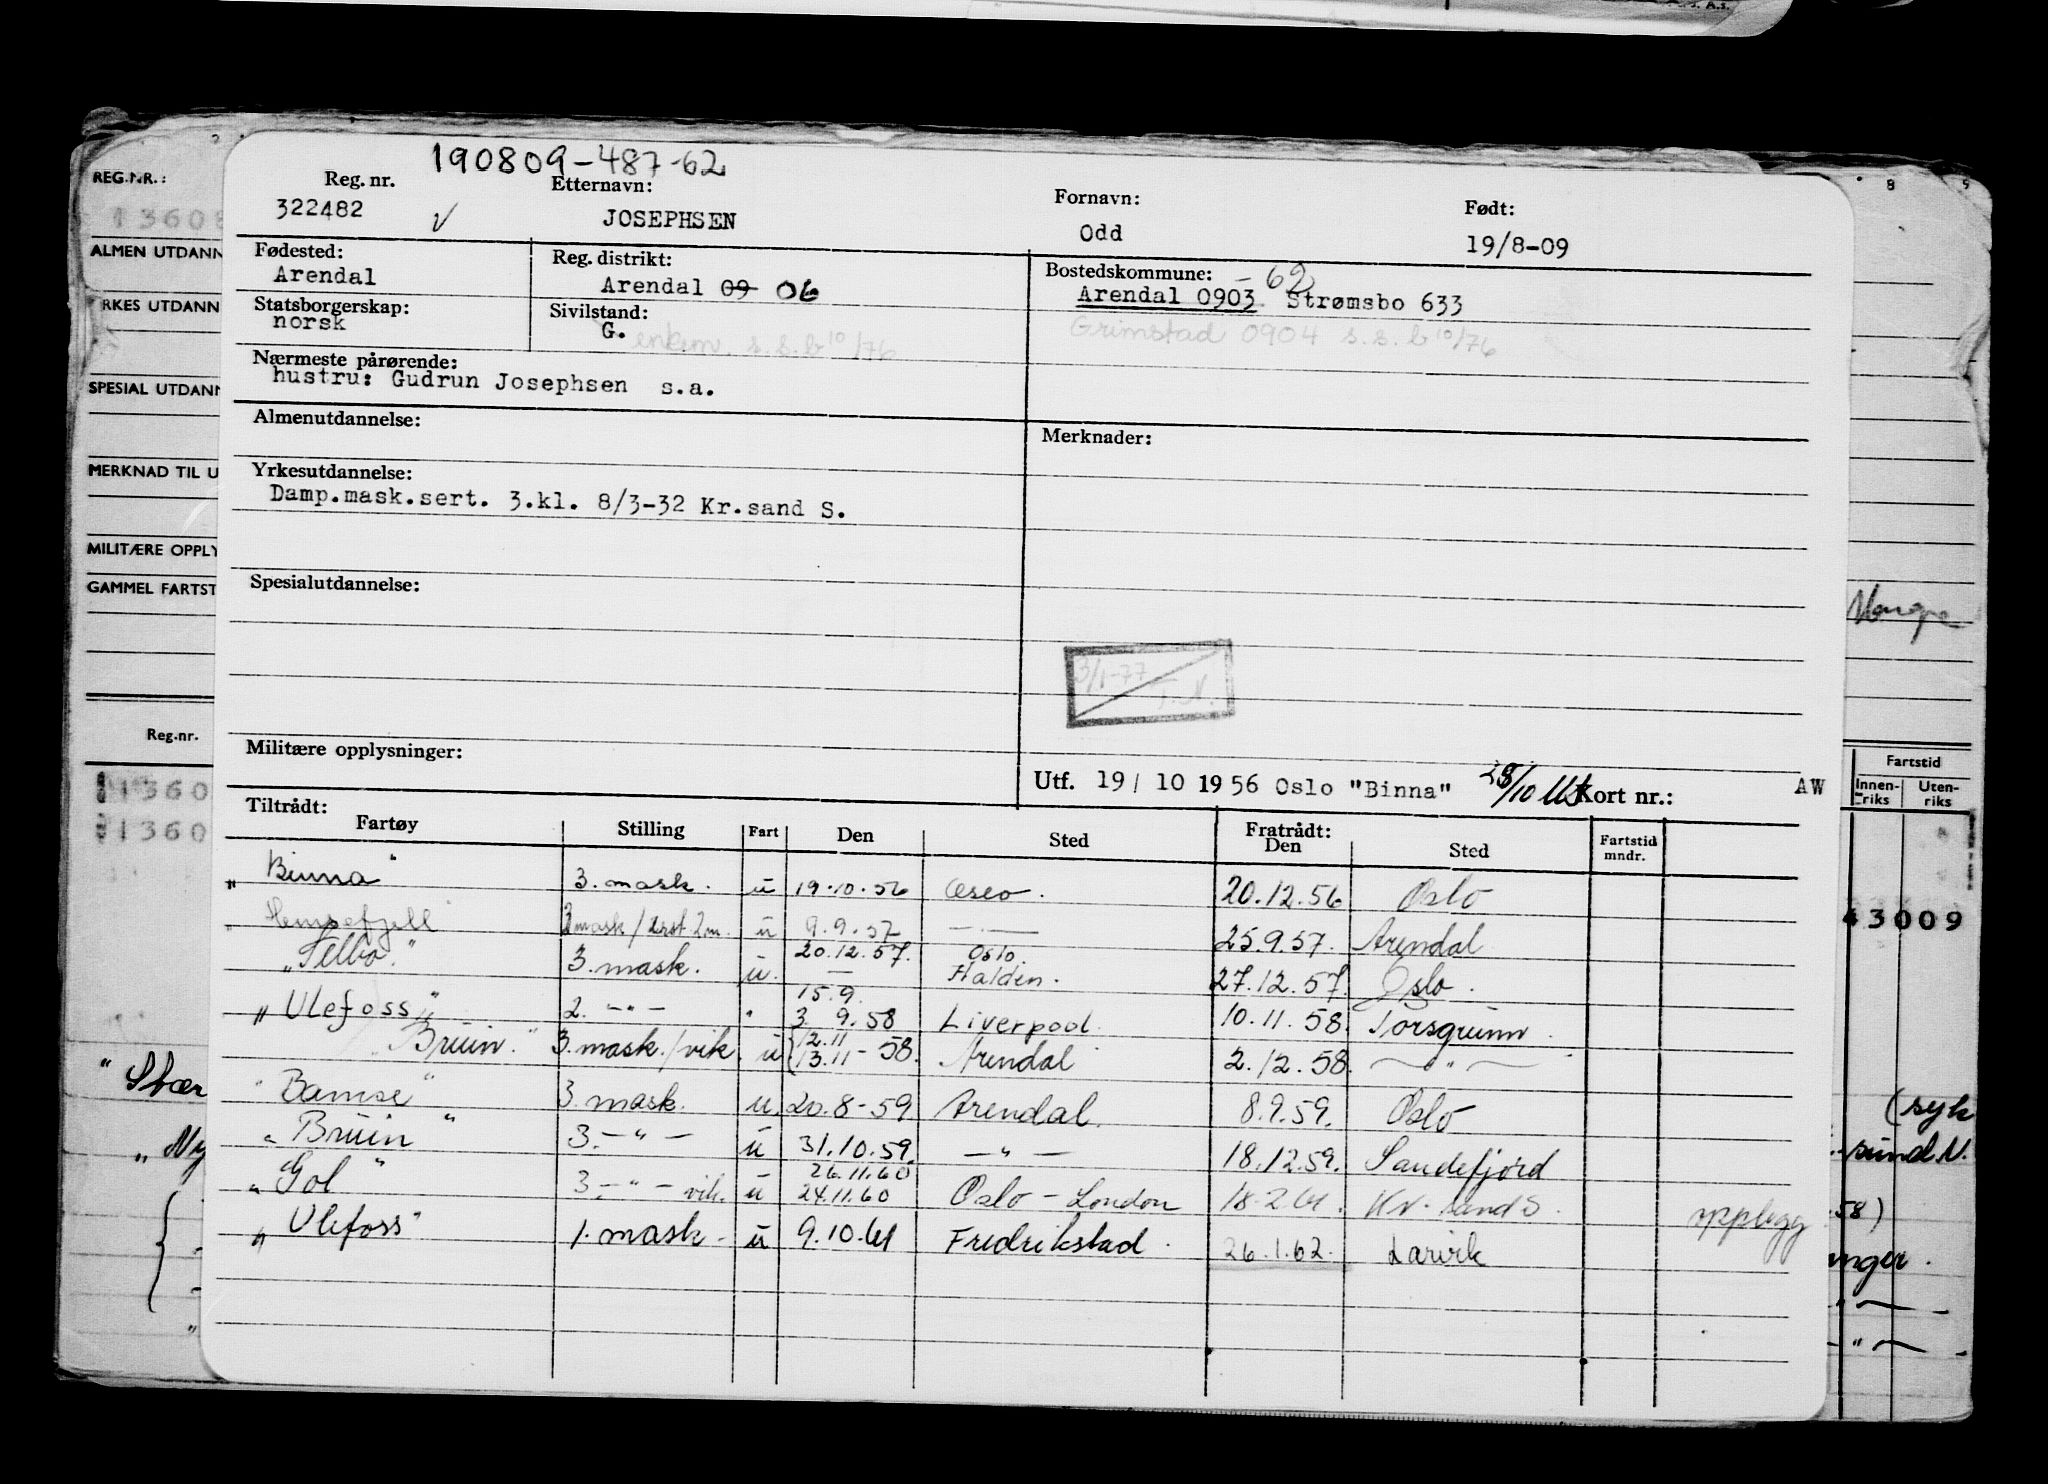 190809-487-62
Reg. nr. Etternavn: Fornavn: Født:
322482 JOSEPHSEN Odd 19/8-09
Fødested: Reg. distrikt: Bostedskommune:
Arendal Arendal 09 06 Arendal 0903 -62 Strømsbo 633
Statsborgerskap: Sivilstand: Grimstad 0904 s.s. b 10/76
norsk G. enkem. s.s. b 10/76
Nærmeste pårørende:
hustru: Gudrun Josephsen s.a.
Almenutdannelse: Merknader:
Yrkesutdannelse:
Damp.mask.sert. 3.kl. 8/3-32 Kr.sand S.
Spesialutdannelse:
3/1-77
Militære opplysninger:
Utf. 19/ 10 1956 Oslo "Binna" Kort nr.: AW
Tiltrådt: Fratrådt:
Fartøy Stilling Fart Den Sted Den Sted Fartstid mndr.
"Binna" 3. mask. u 19.10.56 Oslo. 20.12.56 Oslo
u 9.9.57 — " — 25.9.57. Arendal
"Selbo." 3. mask. u. 20.12.57. Oslo. Halden. 27.12.57. Oslo.
"Ulefoss" 2. — " — " 15.9. 3. 9.58 Liverpool. 10.11.58. Porsgrunn
"Bruin." 3. mask./vik. u 12.11 13.11-58. Arendal 2.12.58. — " —
"Bamse" 3. mask. u. 20.8-59. Arendal. 8.9.59. Oslo
"Bruin" 3. — " — u 31.10.59. — " — 18.12.59. Sandefjord
"Gol" 3. — " — vik. u 26.11.60 24.11.60 Oslo - London 18.2.61. Kr. sand S. opplegg
"Ulefoss" 1. mask. u 9.10.61 Fredrikstad. 26.1.62. Larvik
REG.NR.:
ALMEN UTDANN
YRKES UTDANN
SPESIAL UTDANN
MERKNAD TIL U
MILITÆRE OPPLY
GAMMEL FARTST
Reg.nr.
1360
1360
8 9
Fartstid
Innenriks Utenriks
43009
(syk
sund N.
58)
anger.